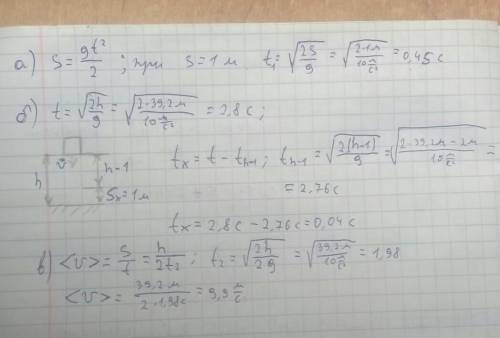 а) S = gt²/2 ; при S = 1 м t₁ = √(2S/g) = √(2·1м / 10 м/с²) = 0,45 с
б) t = √(2h/g) = √(2·39,2 м / 10 м/с²) = 2,8 с ;
h υ h-1 Sₓ = 1 м
tₓ = t - tₕ₋₁ ; tₕ₋₁ = √(2(h-1)/g) = √(2·39,2м - 2м / 10 м/с²) =
= 2,76 с
tₓ = 2,8 с - 2,76 с = 0,04 с
в) <υ> = S/t = h/2t₂ ; t₂ = √(2h/2g) = √(39,2 м / 10 м/с²) = 1,98
<υ> = 39,2 м / 2·1,98с = 9,9 м/с